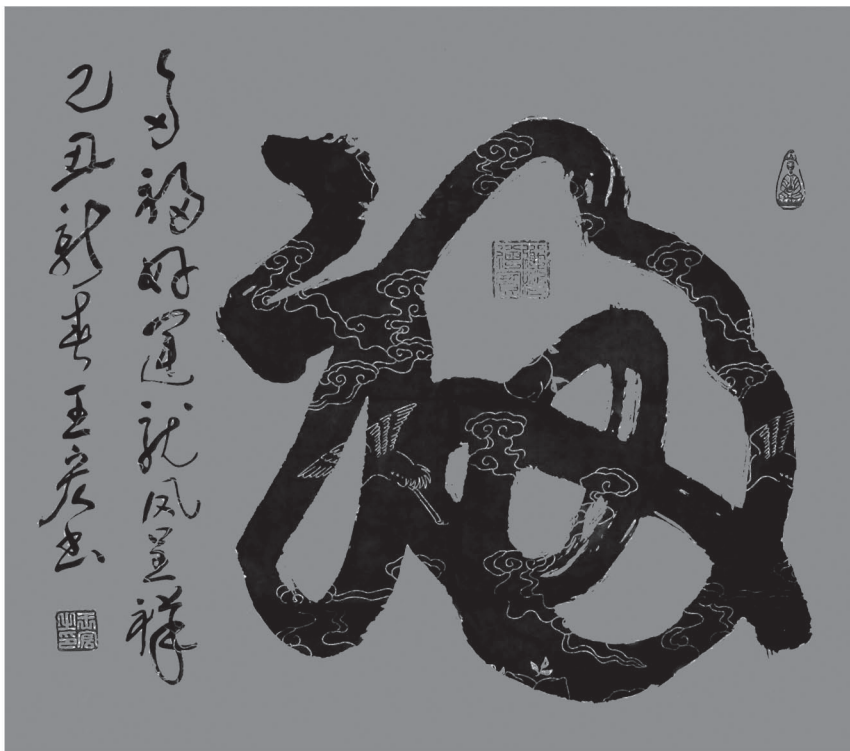 福
多福好運龙凤呈祥
己丑新春王宏书